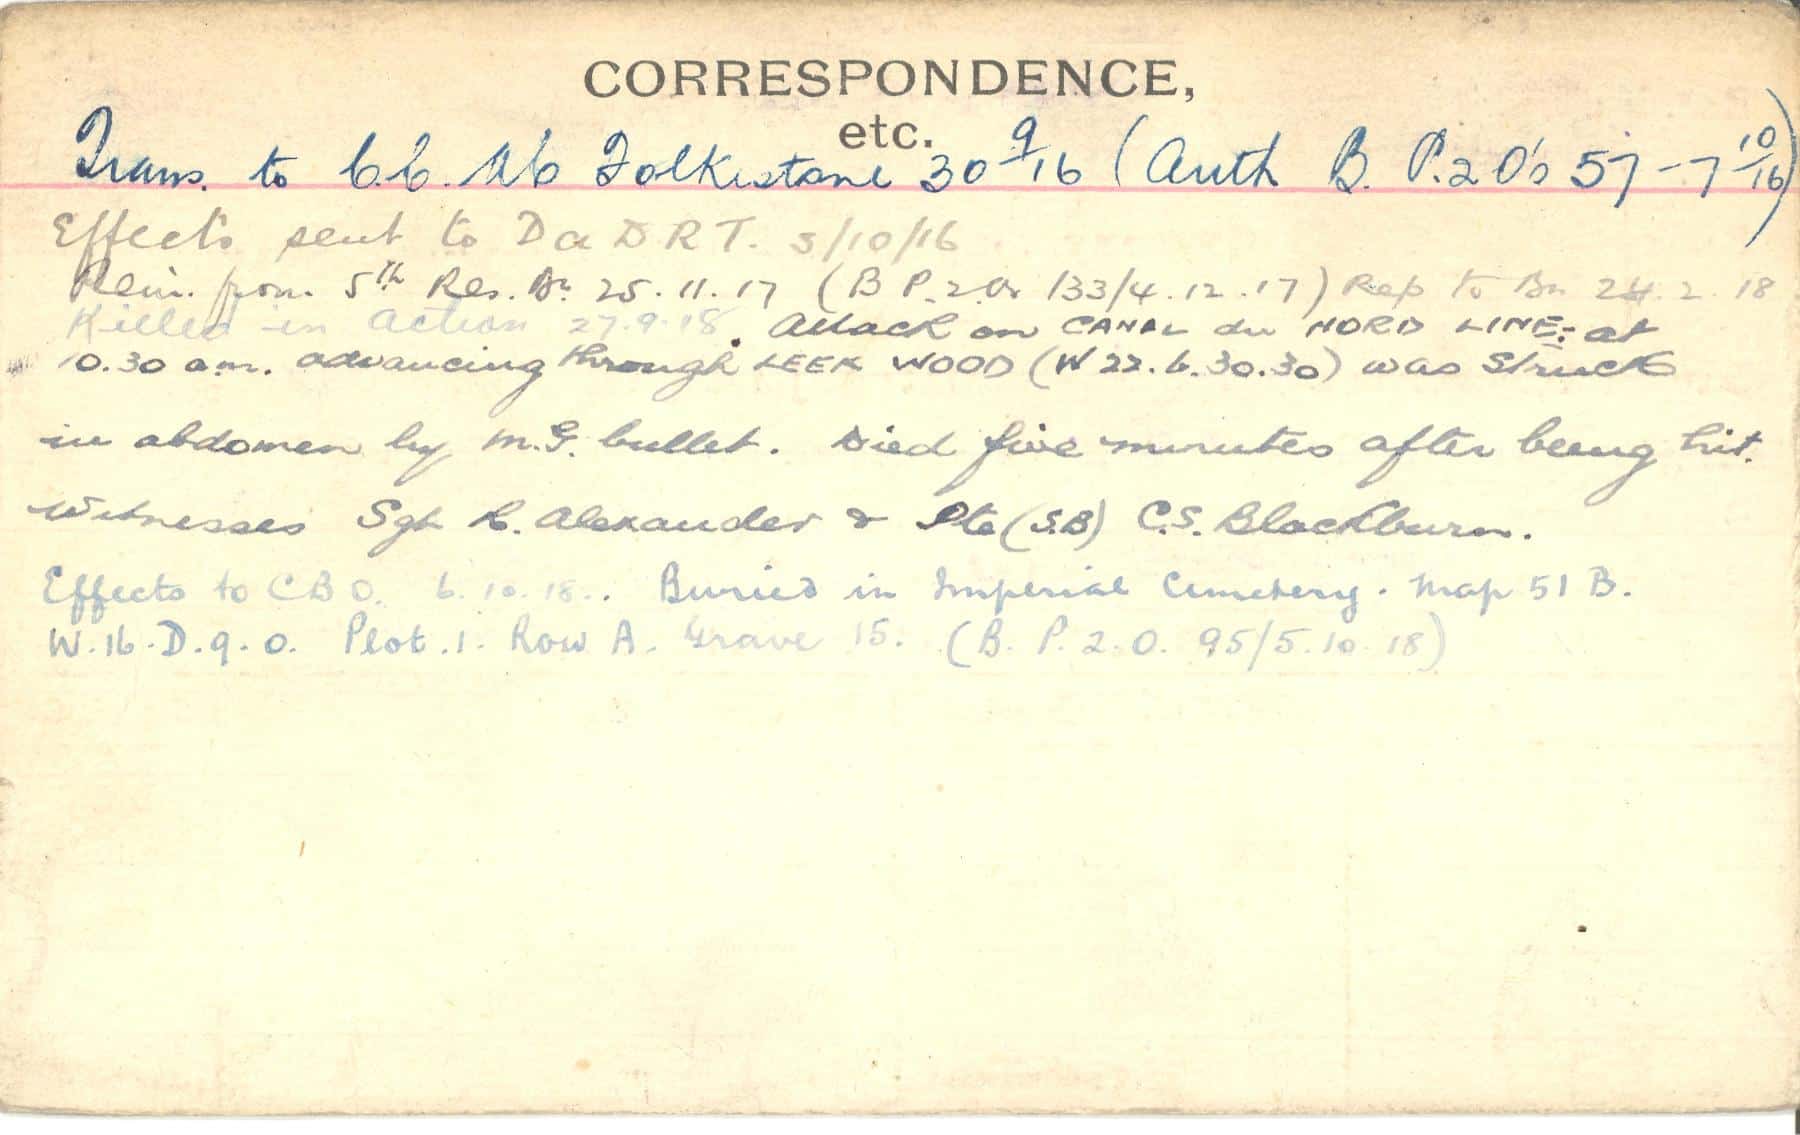 CORRESPONDENCE,
etc.
Trans. to C.C. Ac Folkestone 30 9/16 (Auth B. P.2 O's 57 - 7 10/16)
Effects sent to D a D R T. 3/10/16
Rein. from 5th Res. Bn 25.11.17 (B P. 2. Or 133/4.12.17) Rep to Bn 24.2.18
Killed in action 27.9.18. Attack on CANAL du NORD LINE:- at
10.30 a.m. advancing through LEEK WOOD (W 22.b.30.30) was struck
in abdomen by M.G. bullet. Died five minutes after being hit.
Witnesses Sgt R. Alexander & Pte (S.B) C.S. Blackburn.
Effects to CBO. 6.10.18.. Buried in Imperial Cemetery. Map 51 B.
W.16.D.9.0. Plot.1. Row A. Grave 15. (B. P. 2. O. 95/5.10.18)